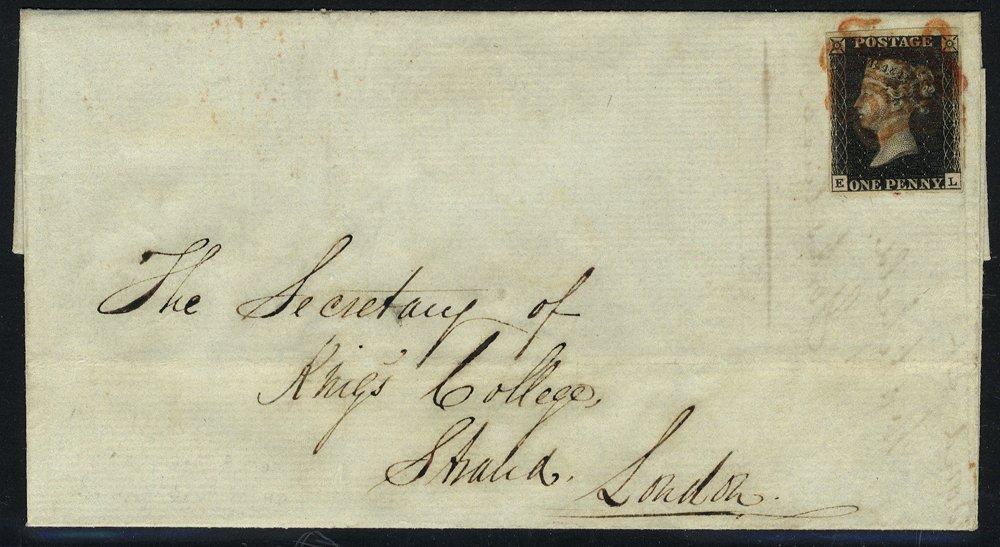 POSTAGE
E ONE PENNY. L
The Secretary of
King's College,
Strand.
London.